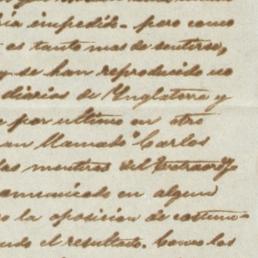 ria impedido. pero como
es tanto mas de sentirse,
y se han reproducido no
diarios de Inglaterra y
e por ultimo en otro
an llamado "Carlos
las mentiras del
comunicado en algun
o la oposicion de costum-
ando el resultado. Como los